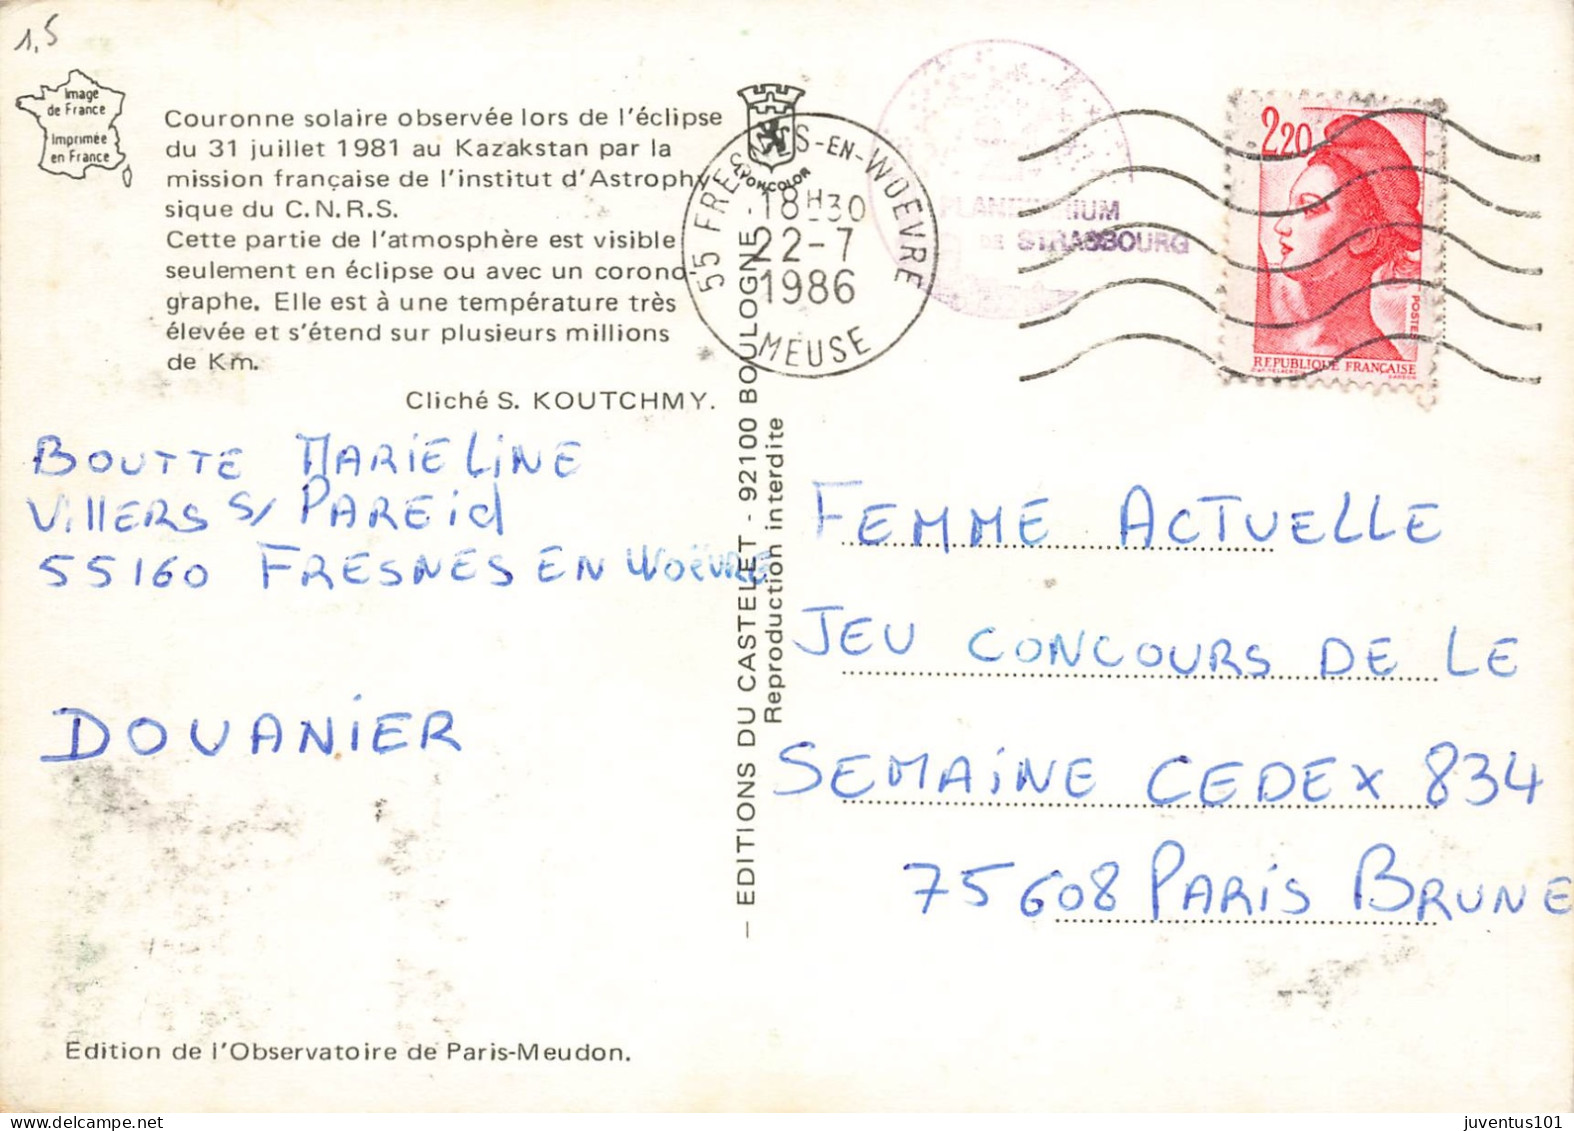 1,5
Image
de France
Imprimée
en France
Couronne solaire observée lors de l'éclipse
du 31 juillet 1981 au Kazakstan par la
mission française de l'institut d'Astrophy-
sique du C.N.R.S.
Cette partie de l'atmosphère est visible
seulement en éclipse ou avec un corono
graphe. Elle est à une température très
élevée et s'étend sur plusieurs millions
de Km.
Cliché S. KOUTCHMY.
BOUTTE MARIELINE
VILLERS S/ PAREID
55160 FRESNES EN WOËVRE
DOUANIER
Edition de l'Observatoire de Paris-Meudon.
LYONCOLOR
— EDITIONS DU CASTELET - 92100 BOULOGNE
Reproduction interdite
55 FRESNES-EN-WOEVRE
18H30
22-7
1986
MEUSE
PLANETARIUM
DE STRASBOURG
2,20
POSTES
REPUBLIQUE FRANÇAISE
FEMME ACTUELLE
JEU CONCOURS DE LE
SEMAINE CEDEX 834
75608 PARIS BRUNE
juventus101